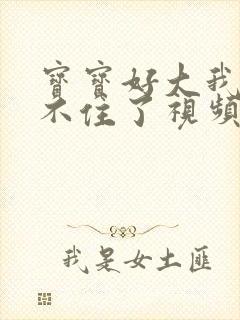 寶寶好大我
不住了視頻
我是女土匪